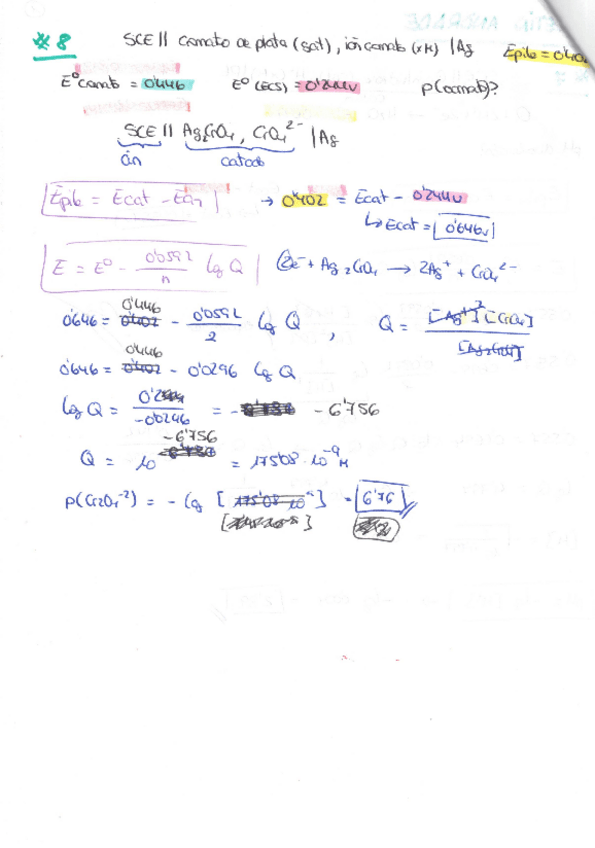 # 8 SCE || Cromato de plata (sat), ión cromato (xM) | Ag Epila = 0'402
E° cromb = 0'446 E° (ECS) = 0'244v p(cromato)?
SCE || Ag2CrO4, CrO4 2- | Ag
án catod
Epila = Ecat - Ean → 0'402 = Ecat - 0'244v
↳ Ecat = 0'646v
E = E° - 0'0592/n lg Q 2e- + Ag2CrO4 → 2Ag+ + CrO4 2-
0'646 = 0'446 - 0'0592/2 lg Q , Q = [Ag+]2 [CrO4]/[Ag2CrO4]
0'646 = 0'446 - 0'0296 lg Q
lg Q = 0'2/-0'0296 = - 6'756
Q = 10 -6'756 = 175'08 · 10-9 M
p(CrO4-2) = - lg [175'08 10] = 6'76